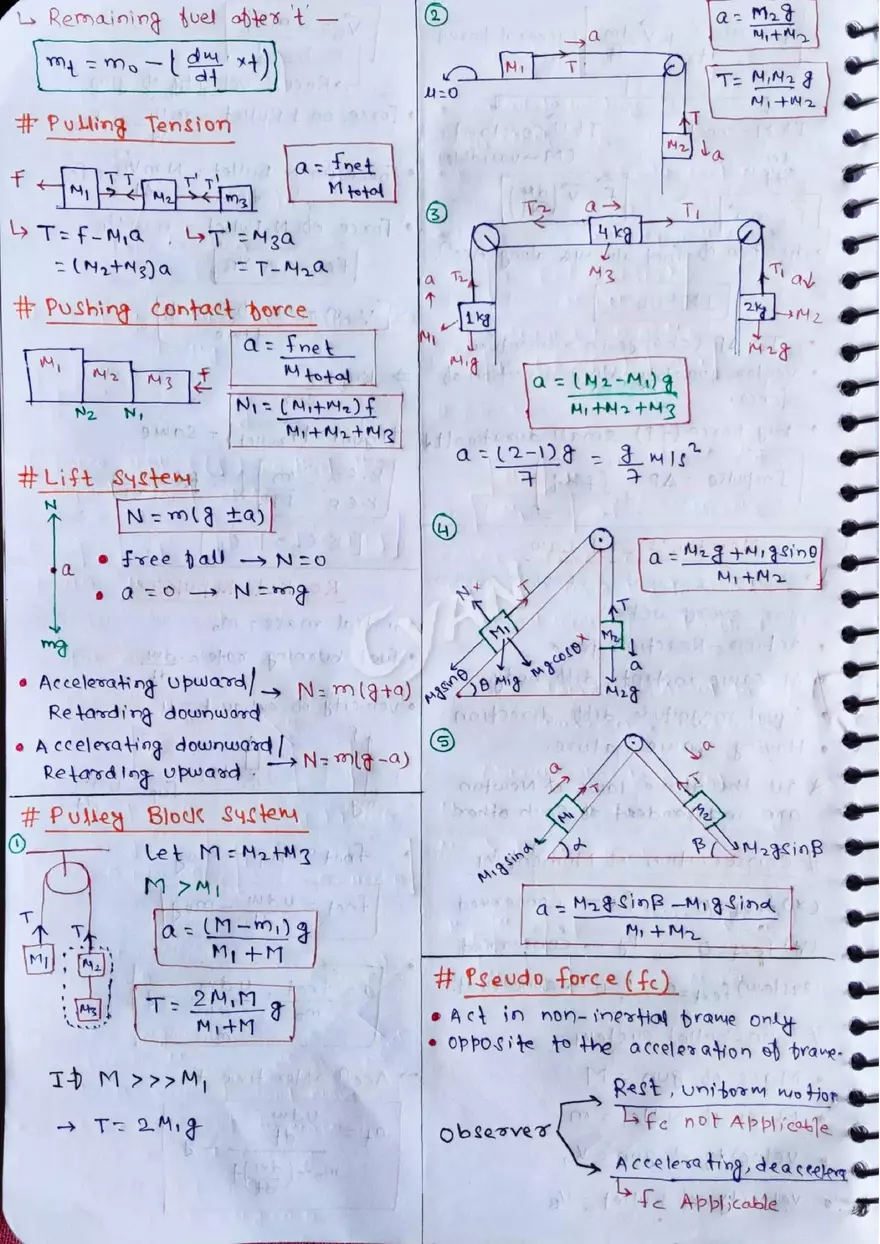 ↳ Remaining fuel after 't' —
m_t = m_0 - (dm/dt × t)
# Pulling Tension
F M1 T T M2 T' T' m3
a = fnet / Mtotal
↳ T = f - M1a ↳ T' = M3a
= (M2+M3)a = T - M2a
# Pushing contact force
M1 M2 M3 f
N2 N1
a = fnet / Mtotal
N1 = (M1+M2)f / M1+M2+M3
# Lift system
N
a
mg
N = m(g ± a)
• free fall → N=0
• a = 0 → N = mg
• Accelerating upward/ → N = m(g+a)
Retarding downward
• Accelerating downward/ → N = m(g-a)
Retarding upward
# Pulley Block system
①
T T
M1 M2
M3
Let M = M2+M3
M > M1
a = (M - m1)g / M1+M
T = 2M1M / M1+M g
If M >>> M1
→ T = 2M1g
②
a = M2g / M1+M2
T = M1M2 g / M1+M2
μ=0 M1 T a
T
M2 a
③
T2 a → T1
4kg
M3
a T2 1kg M1 M1g
T1 a 2kg M2 M2g
a = (M2-M1)g / M1+M2+M3
a = (2-1)g / 7 = g/7 m/s²
④
a = M2g + M1gsinθ / M1+M2
N T M1
Mgsinθ θ M1g Mgcosθ
T M2 a M2g
⑤
a T M1 M1gsinα α
a T M2 β M2gsinβ
a = M2gsinβ - M1gsinα / M1+M2
# Pseudo force (fc)
• Act in non-inertial frame only
• opposite to the acceleration of frame.
observer
Rest, uniform motion
↳ fc not Applicable
Accelerating, deaccelera
↳ fc Applicable
CYAN